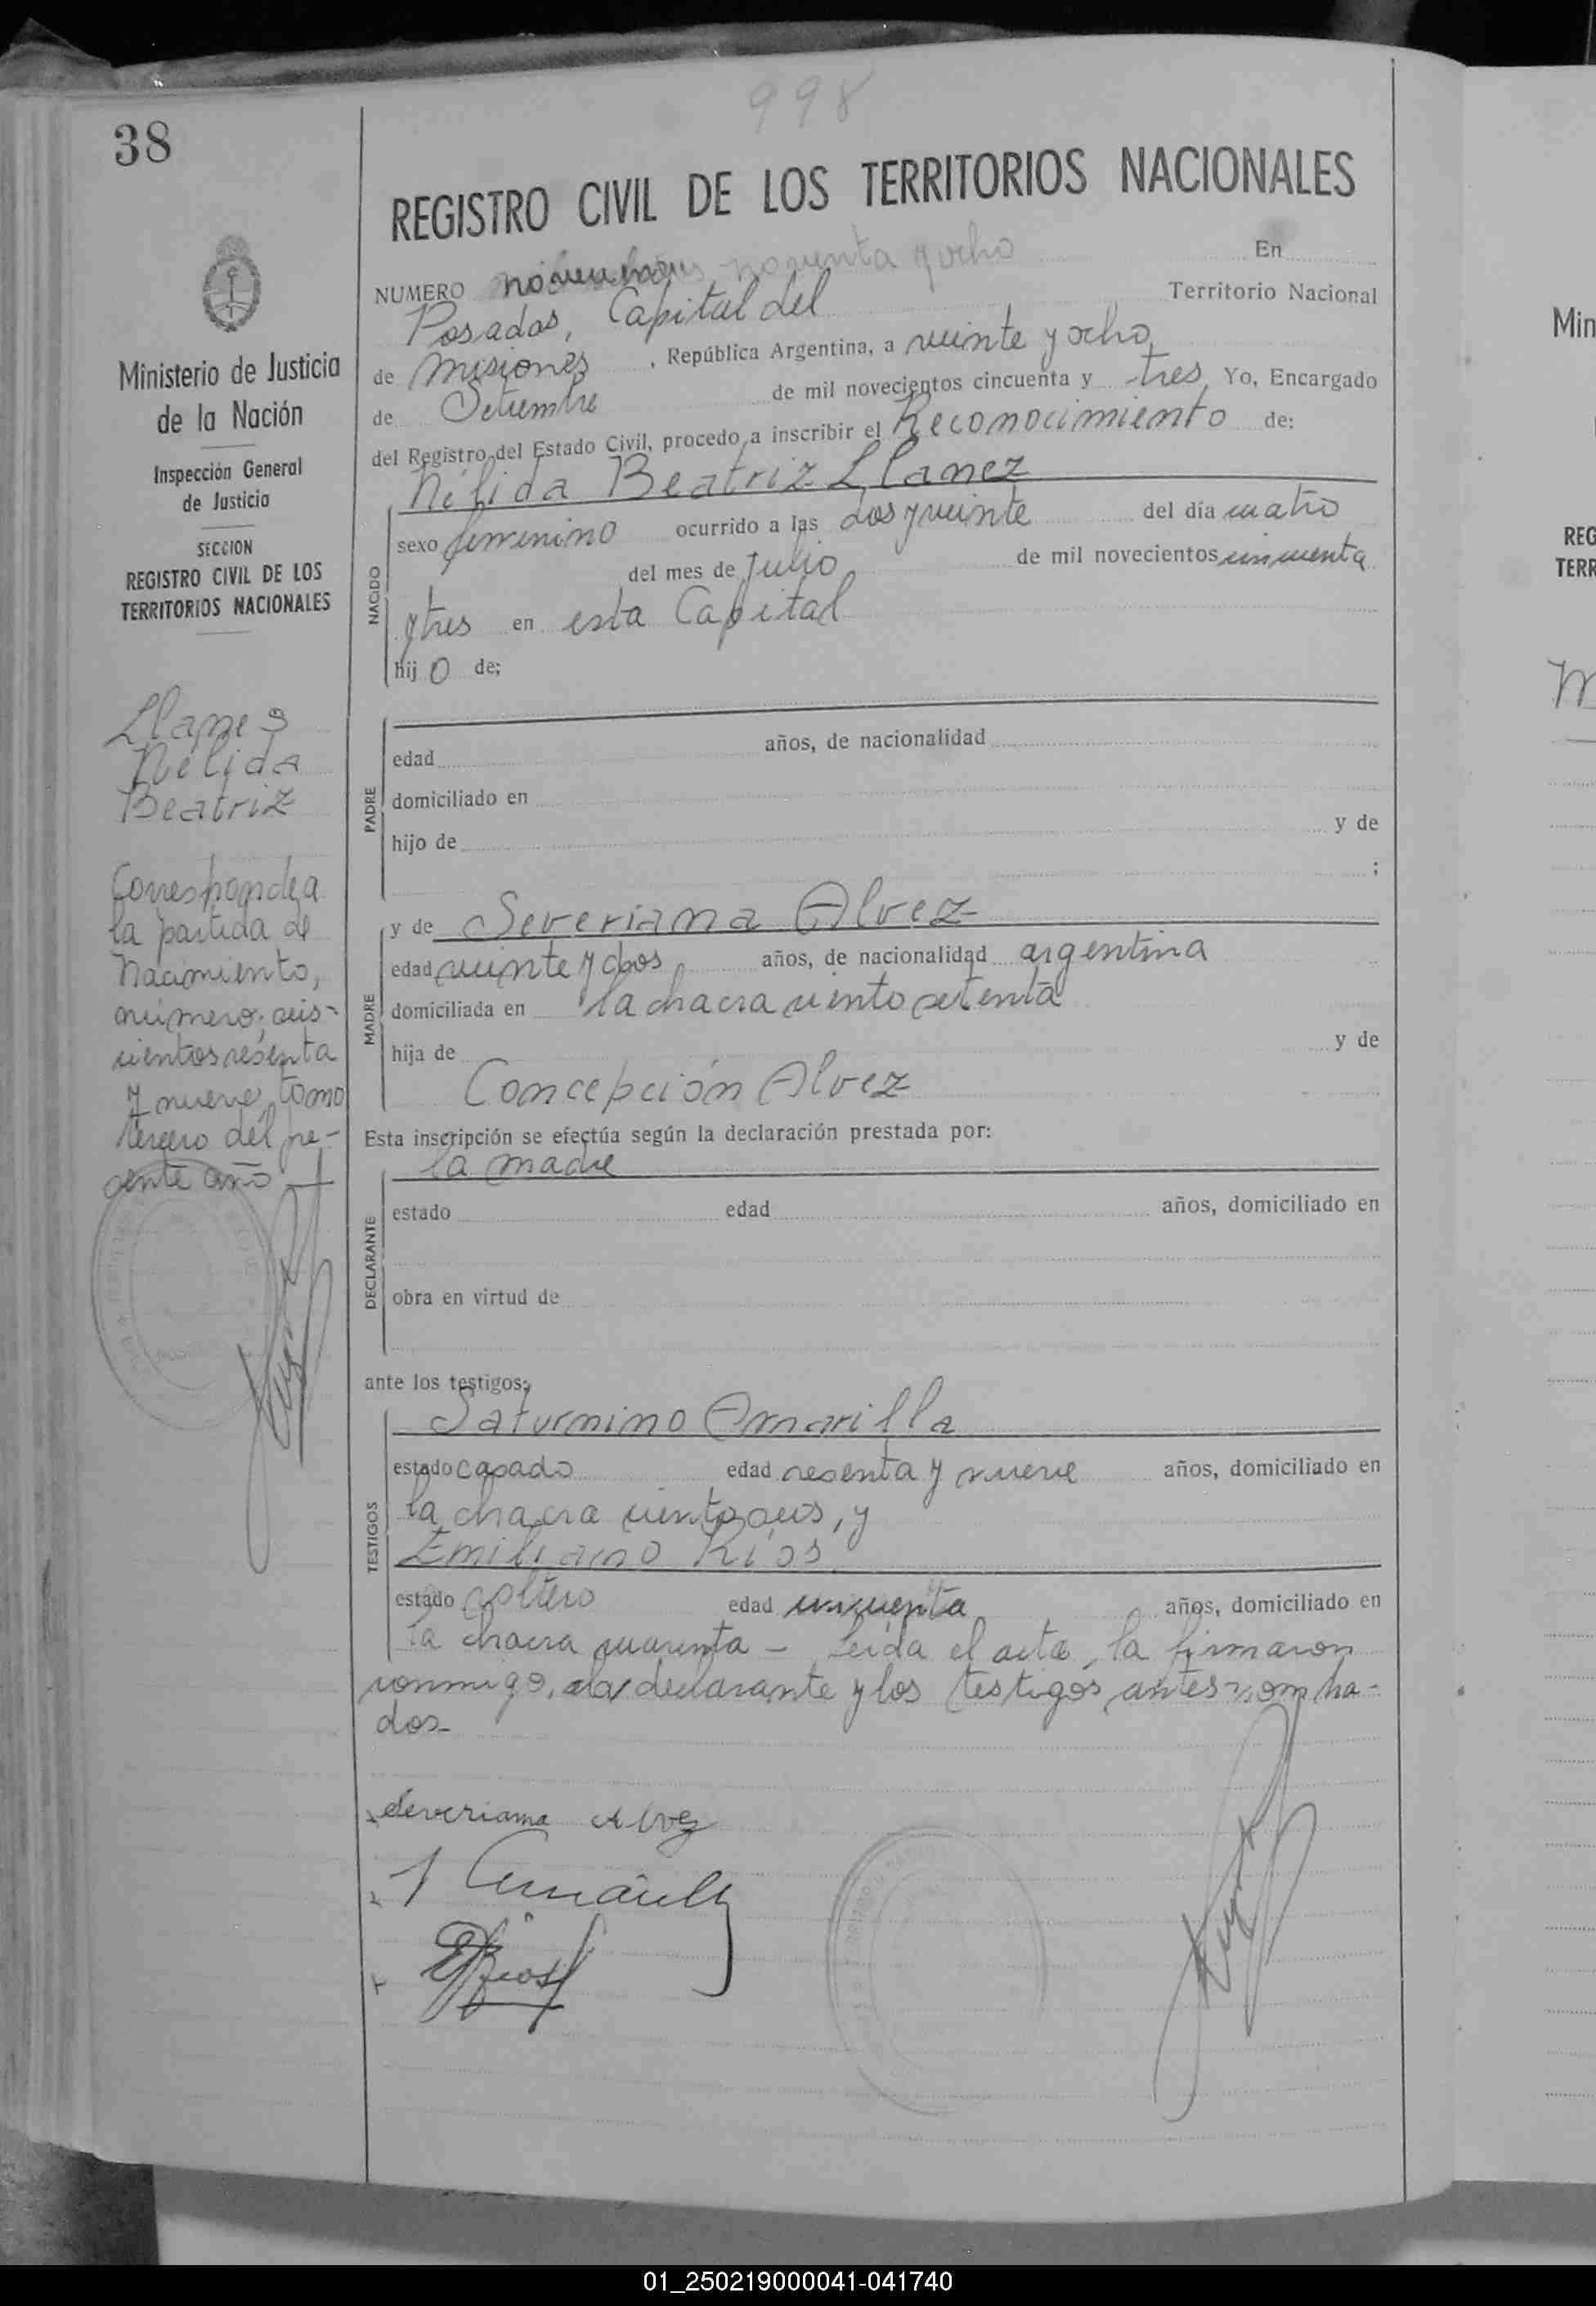 998
38
REGISTRO CIVIL DE LOS TERRITORIOS NACIONALES
NUMERO novecientos noventa y ocho En
Posadas, Capital del Territorio Nacional
de Misiones, República Argentina, a veinte y ocho
de Setiembre de mil novecientos cincuenta y tres, Yo, Encargado
del Registro del Estado Civil, procedo a inscribir el Reconocimiento de:
Nélida Beatriz Llanez
NACIDO
sexo femenino ocurrido a las dos y veinte del día cuatro
del mes de Julio de mil novecientos cincuenta
y tres en esta Capital
hij o de;
PADRE
edad años, de nacionalidad
domiciliado en
hijo de y de
;
MADRE
y de Severiana Alvez
edad veinte y dos años, de nacionalidad argentina
domiciliada en la chacra ciento setenta
hija de y de
Concepción Alvez
Esta inscripción se efectúa según la declaración prestada por:
la madre
DECLARANTE
estado edad años, domiciliado en
obra en virtud de
ante los testigos;
Saturnino Amarilla
TESTIGOS
estado casado edad sesenta y nueve años, domiciliado en
la chacra ciento seis, y
Emiliano Ríos
estado soltero edad cincuenta años, domiciliado en
la chacra cuarenta - Leida el acta, la firmaron
conmigo, la declarante y los testigos antes nombra-
dos-
Severiana Alvez
Ministerio de Justicia
de la Nación
Inspección General
de Justicia
SECCION
REGISTRO CIVIL DE LOS
TERRITORIOS NACIONALES
Llanes
Nélida
Beatriz
Corresponde a
la partida de
Nacimiento,
número; seis-
cientos sesenta
y nueve, tomo
tercero del pre-
sente año
Min
REG
TERR
01_250219000041-041740